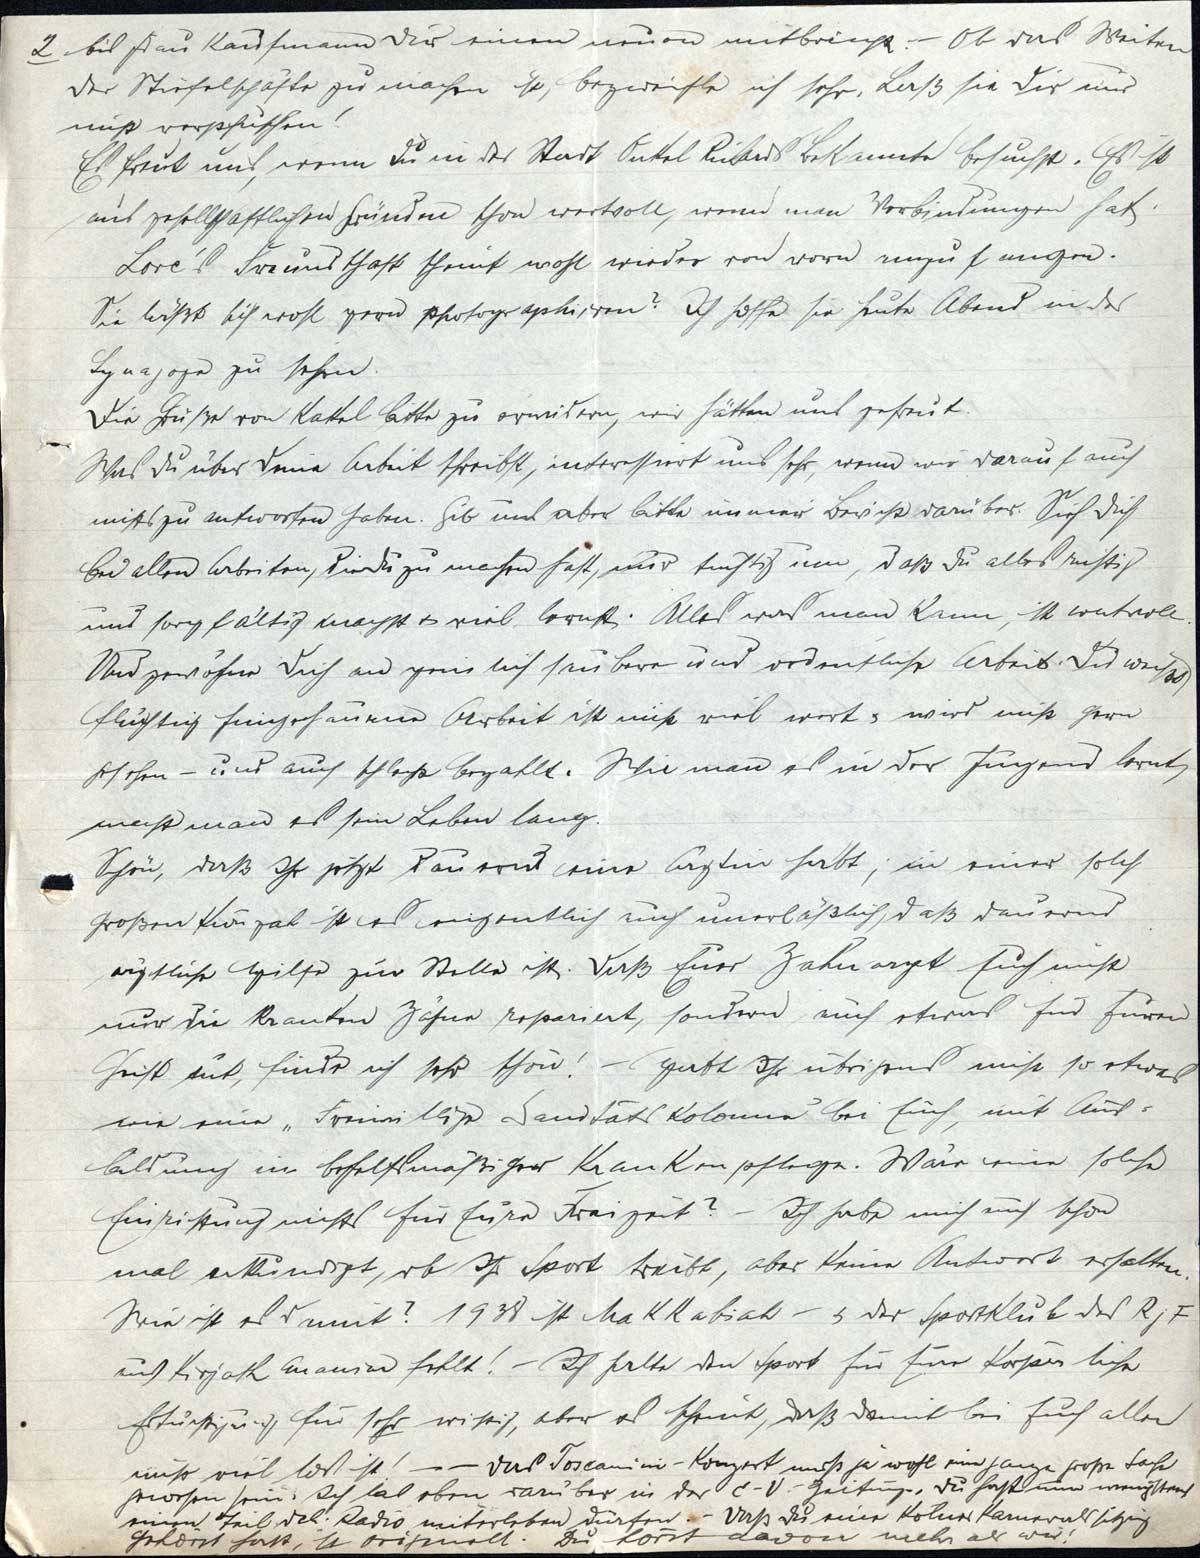 2 bis Frau Kaufmann Dir einen neuen mitbringt. – Ob das Weiten
der Stiefelschäfte zu machen ist, bezweifle ich sehr. Laß sie Dir nur
nicht verpfuschen!
Es freut uns, wenn Du in der Stadt Onkel Richards Bekannte besuchst. Es ist
aus gesellschaftlichen Gründen schon wertvoll, wenn man Verbindungen hat.
Lore's Freundschaft scheint wohl wieder von vorn anzufangen.
Sie läßt sich wohl gern photographieren? Ich hoffe sie heute Abend in der
Synagoge zu sehen.
Die Grüße von Kattel bitte zu erwidern, wir hätten uns gefreut.
Was Du über Deine Arbeit schreibst, interessiert uns sehr, wenn wir darauf auch
nichts zu antworten haben. Gib uns aber bitte immer Bericht darüber. Sieh Dich
bei allen Arbeiten, die Du zu machen hast, nur tüchtig um, daß Du alles richtig
und sorgfältig machst & viel lernst. Alles was man kann, ist wertvoll.
Und gewöhne Dich an peinlich saubere und ordentliche Arbeit. Du weißt,
flüchtig hingehauene Arbeit ist nicht viel wert & wird nicht gern
gesehen – und auch schlecht bezahlt. Wie man es in der Jugend lernt,
macht man es sein Leben lang.
Schön, daß Ihr jetzt dauernd eine Ärztin habt; in einer solch
großen Kwuzah ist es eigentlich auch unerläßlich, daß dauernd
ärztliche Hilfe zur Stelle ist. Daß Euer Zahnarzt Euch nicht
nur die kranken Zähne repariert, sondern auch etwas für Euren
Geist tut, finde ich sehr schön! – Habt Ihr übrigens nicht so etwas
wie eine „Freiwillige Sanitätskolonne" bei Euch, mit Aus-
bildung in behelfsmäßiger Krankenpflege. Wäre eine solche
Einrichtung nichts für Eure Freizeit? – Ich habe mich auch schon
mal erkundigt, ob Ihr Sport treibt, aber keine Antwort erhalten.
Wie ist es damit? 1938 ist Makkabiah – & der Sportklub des RjF
aus Kirjath Anavim fehlt! – Ich halte den Sport für Eure körperliche
Ertüchtigung für sehr wichtig, aber es scheint, daß damit bei Euch allen
nicht viel los ist! – – Das Toscanini-Konzert muß ja wohl eine ganze große Sache
gewesen sein. Ich las eben darüber in der C-V-Zeitung. Du hast nun wenigstens
einen Teil des Radio miterleben dürfen. – Daß Du eine Kölner Karnevalssitzung
gehört hast, ist originell. Du hörst davon mehr als wir!